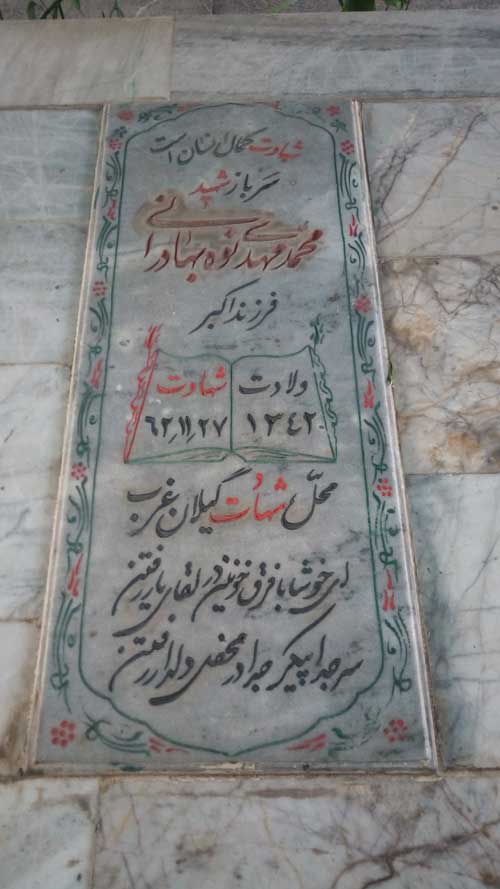 شهادت کمال انسان است
سرباز شهید
محمد مهدی نوه بهادرانی
فرزند اکبر
ولادت شهادت
۱۳۴۲ ۶۲٫۱۱٫۲۷
محل شهادت گیلان غرب
ای خوشا با فرق خونین در لقای یار رفتن
سر جدا پیکر جدا در محفل دلدار رفتن